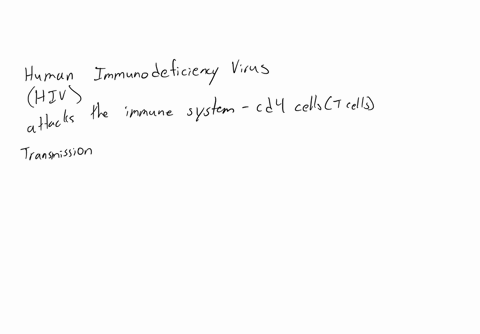 Human Immunodeficiency Virus
(HIV)
attacks the immune system - cd4 cells (T cells)
Transmission